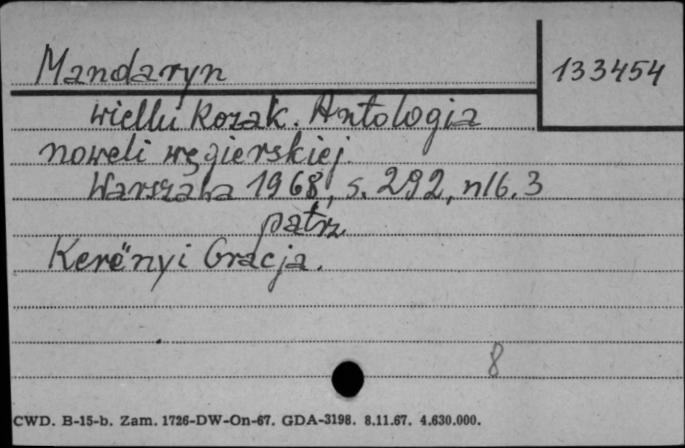 Mandaryn
133454
wielki kozak. Antologia
noweli węgierskiej.
Warszawa 1968, s. 292, nlb. 3
patrz
Kerënyi Gracja.
8
CWD. B-15-b. Zam. 1726-DW-On-67. GDA-3198. 8.11.67. 4.630.000.